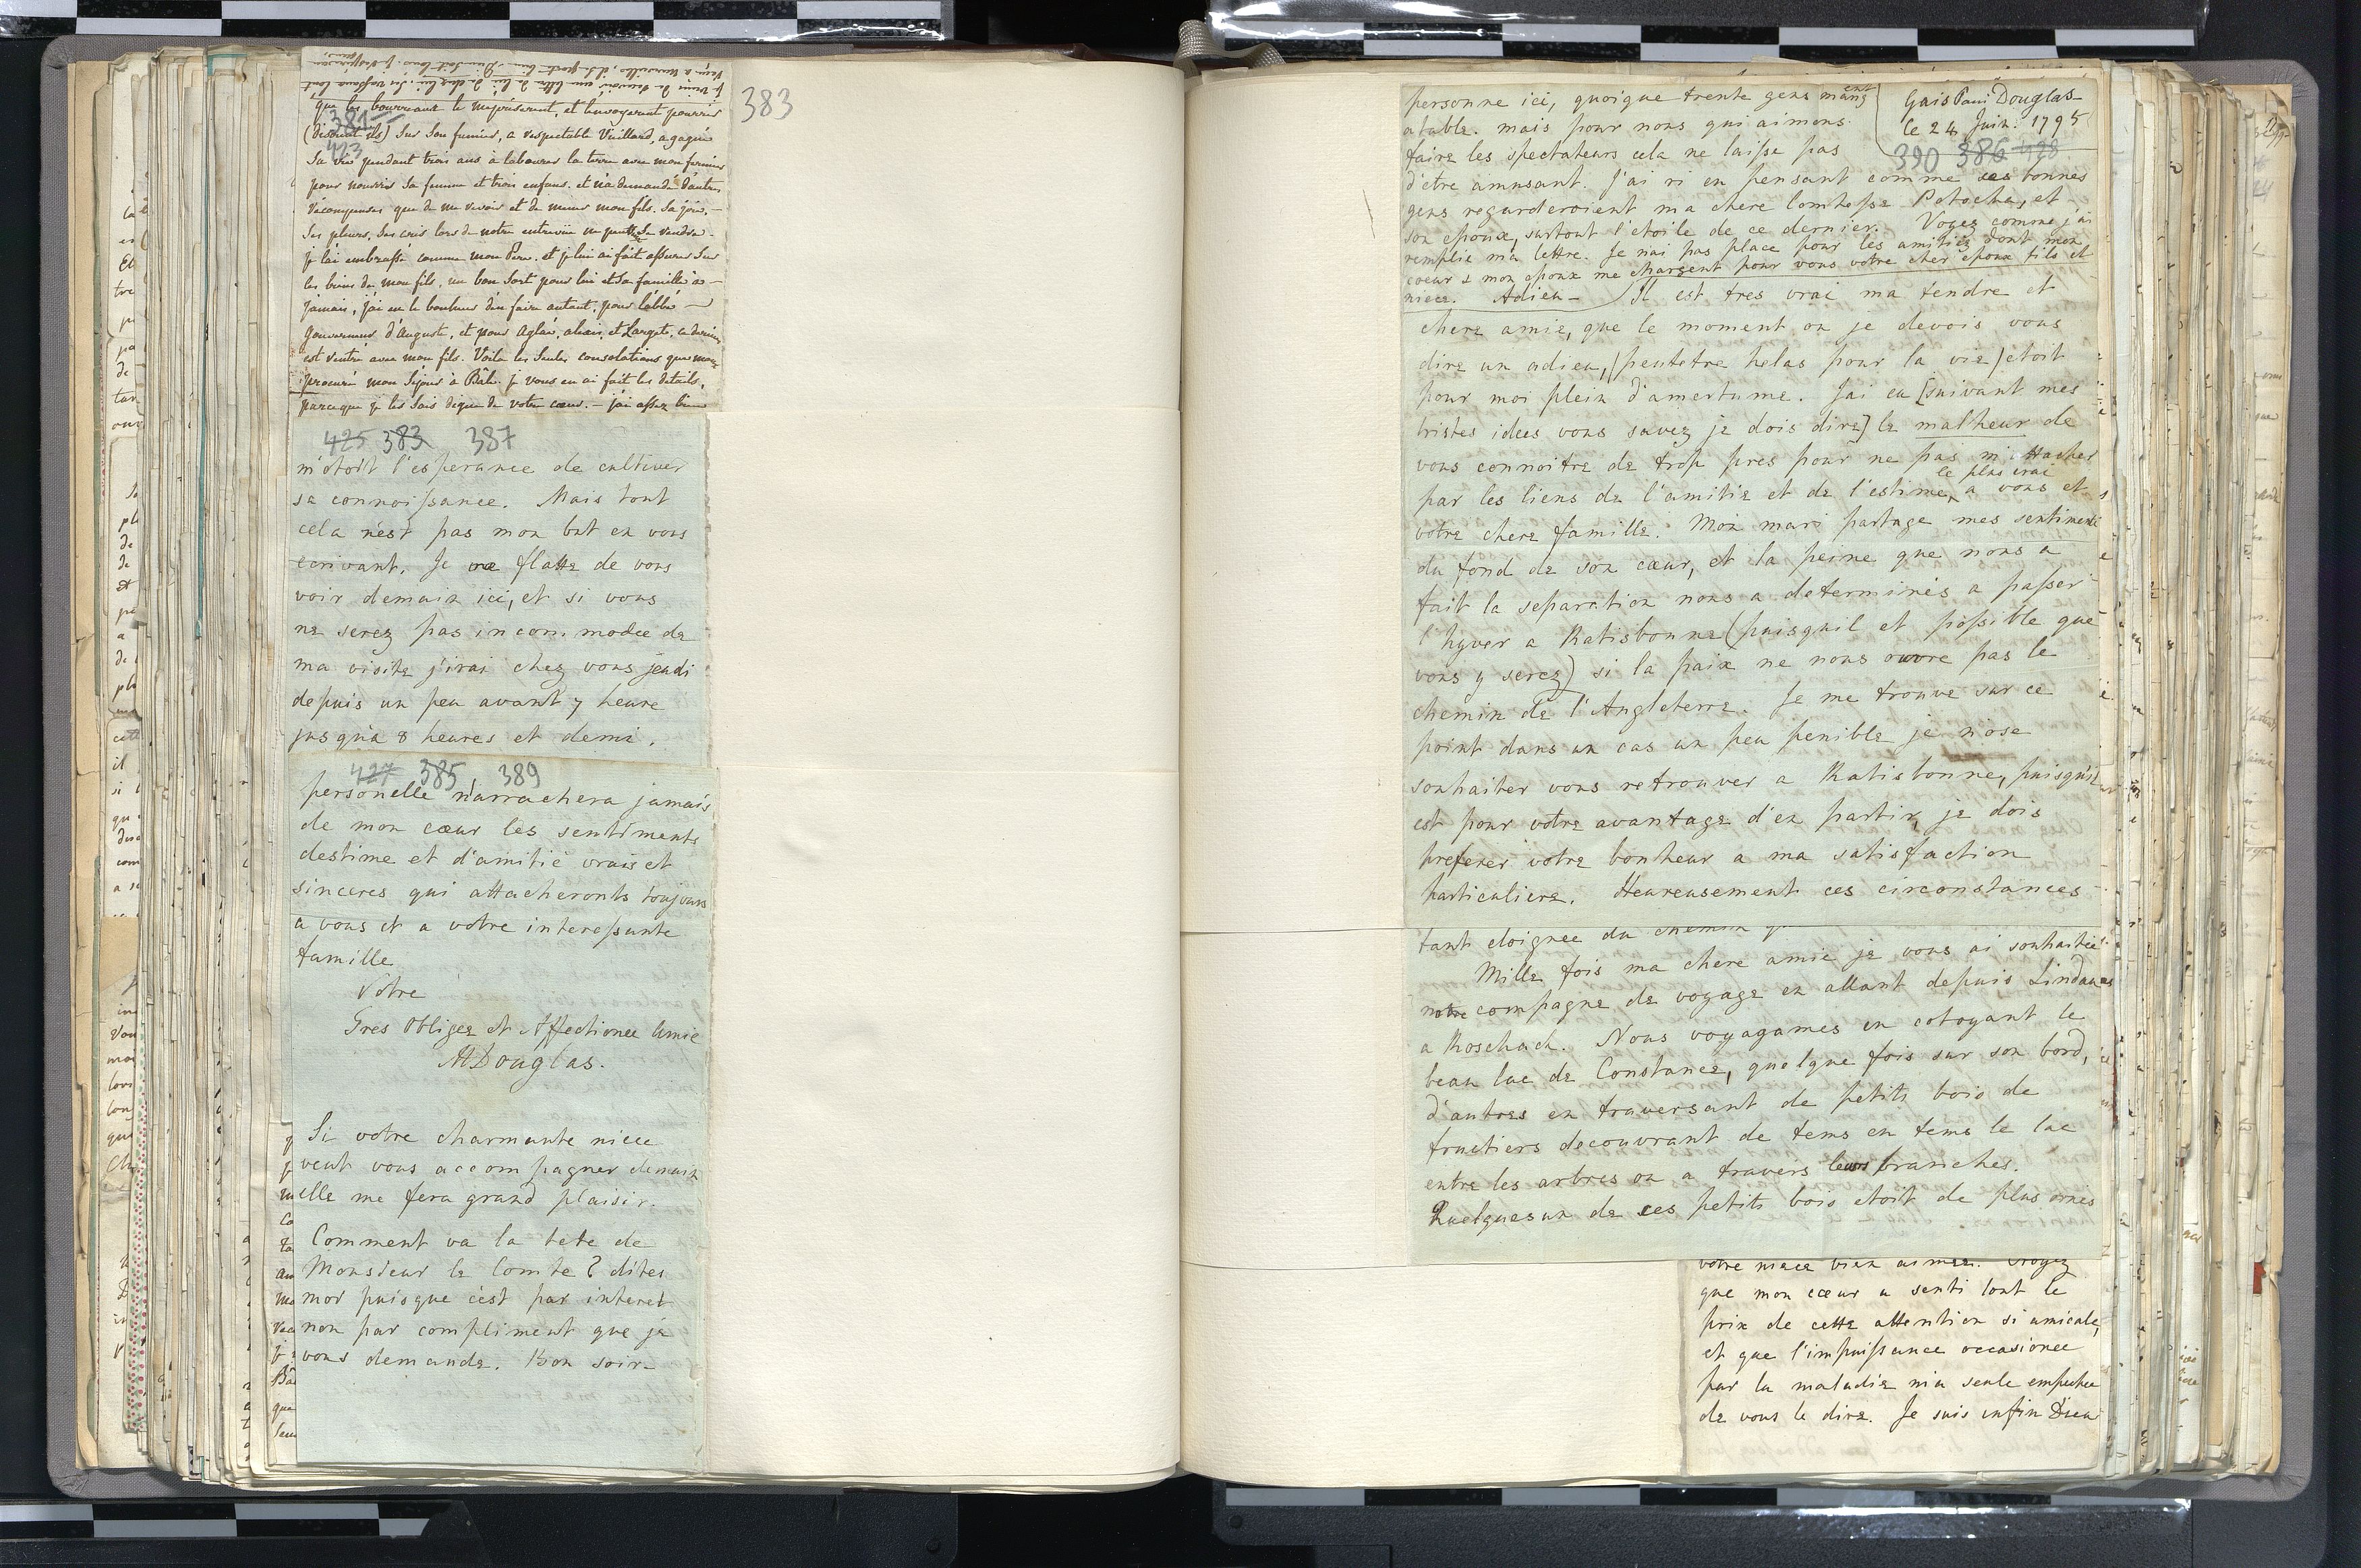 383
381
423
que les bourreaux le mepriserent, et l'envoyerent pourrir
(disoient ils) sur son fumier, ce respectable Vieillard, a gagné
sa vie pendant trois ans à labourer la terre avec mon fermier
pour nourrir sa femme et trois enfans. et n'a demandé d'autres
récompenses que de me revoir et de mener mon fils. Sa joie,
ses pleurs, ses cris lors de notre entrevüe ne peuvent se rendre.
je l'ai embrassé comme mon Pere. et je lui ai fait assurer sur
les biens de mon fils, un bon sort pour lui et sa famille à
jamais, j'ai eu le bonheur d'en faire autant, pour l'abbé
Gouverneur d'Auguste, et pour Aglaé, alexis, et Largete, ce dernier
est rentré avec mon fils. Voila les seules consolations que m'a
procuré mon séjour à Bâle. je vous en ai fait les détails,
parceque je les sais digne de votre cœur. – j'ai assez bien
425 383 387
m'otoit l'esperance de cultiver
sa connoissance. Mais tout
cela n'est pas mon but en vous
ecrivant. Je me flatte de vous
voir demain ici, et si vous
ne serez pas incommodee de
ma visite j'irai chez vous jeudi
depuis un peu avant 7 heure
jusqu'a 8 heures et demie.
427 385 389
personelle n'arrachera jamais
de mon cœur les sentiments
destime et d'amitié vrais et
sinceres qui attacheronts toujours
a vous et a votre interessante
famille
Votre
Tres Obligee et Affectionee Amie
ADouglas.
Si votre charmante niece
veut vous accompagner demain
elle me fera grand plaisir.
Comment va la tete de
Monsieur le Comte? dites
moi puisque c'est par interet
non par compliment que je
vous demande. Bon soir
personne ici, quoique trente gens mangent
a table. mais pour nous qui aimons
faire les spectateurs cela ne laisse pas
Gais Douglas
le 24 Juin. 1795
390 386 428
d'etre amusant. J'ai ri en pensant comme ces bonnes
gens regarderoient ma chere Comtesse Potocka, et
son epoux, surtout l'etoile de ce dernier. Voyez comme j'ai
remplie ma lettre. Je n'ai pas place pour les amitiés dont mon
coeur & mon epoux me chargent pour vous votre cher epoux fils et
niece. Adieu – Il est tres vrai ma tendre et
chere amie, que le moment ou je devois vous
dire un adieu, (peutetre helas pour la vie) etoit
pour moi plein d'amertume. J'ai eu [suivant mes
tristes idees vous savez je dois dire] le malheur de
vous connoitre de trop pres pour ne pas m'attacher
par les liens de l'amitie et de l'estime le plus vrai a vous et
votre chere famille. Mon mari partage mes sentiments
du fond de son cœur, et la peine que nous a
fait la separation nous a determinés a passer
l'hyver a Ratisbonne (puisquil et possible que
vous y serez) si la paix ne nous ouvre pas le
chemin de l'Angleterre. Je me trouve sur ce
point dans un cas un peu penible je n'ose
souhaiter vous retrouver a Ratisbonne, puisqu'il
est pour votre avantage d'en partir, je dois
preferer votre bonheur a ma satisfaction
particuliere. Heureusement ces circonstances
tant eloignee du chemin
Mille fois ma chere amie je vous ai souhaitée
notre compagne de voyage en allant depuis Lindau
a Roschach. Nous voyagames en cotoyant le
beau lac de Constance, quelque fois sur son bord,
d'autres en traversant de petits bois de
fructiers decouvrant de tems en tems le lac
entre les arbres ou a travers leurs branches.
Quelquesun de ces petits bois etoit de plus ornés
votre niece bien aimee. Croyez
que mon cœur a senti tout le
prix de cette attention si amicale,
et que l'impuissance occasionee
par la maladie m'a seule empechee
de vous le dire. Je suis enfin Dieu